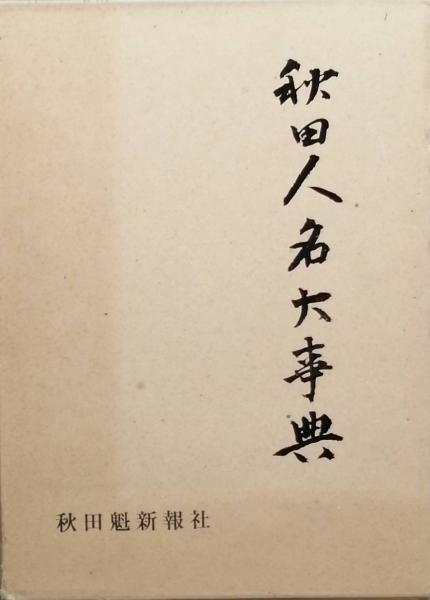 秋田人名大事典
秋田魁新報社